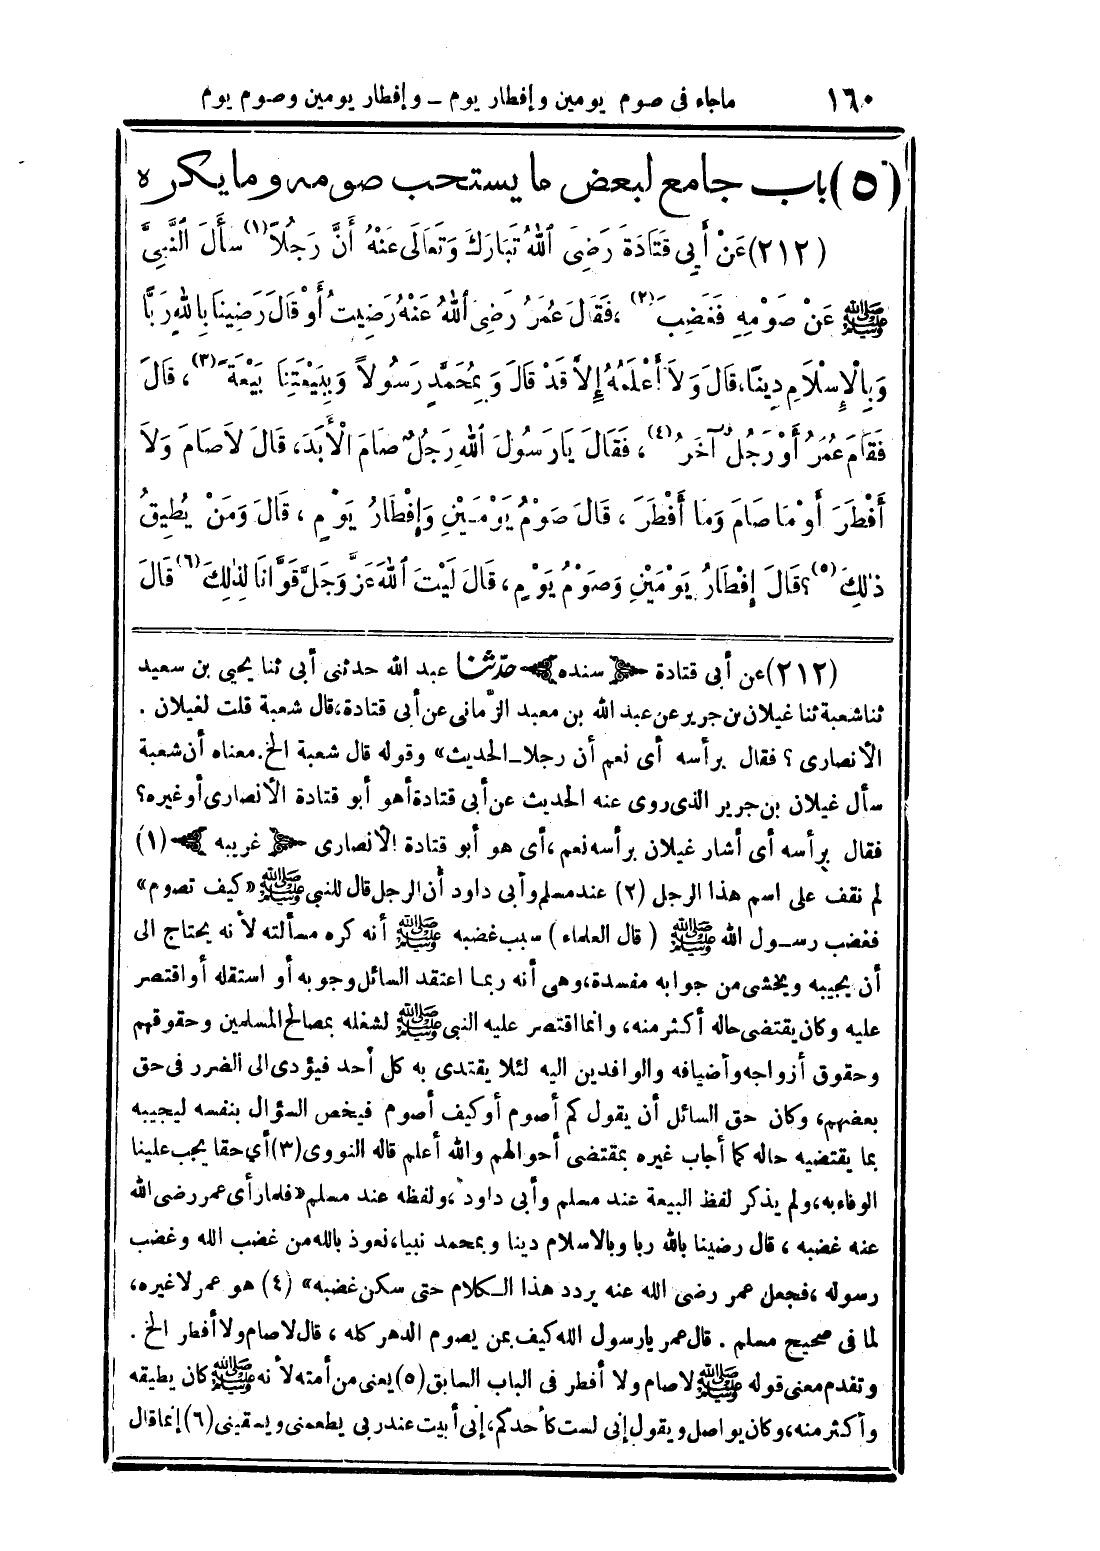 ١٦٠ ماجاء فى صوم يومين وإفطار يوم – وإفطار يومين وصوم يوم
(٥) باب جامع لبعض ما يستحب صومه وما يكره
(٢١٢) عَنْ أَبِي قَتَادَةَ رَضِىَ اللهُ تَبَارَكَ وَتَعَالَى عَنْهُ أَنَّ رَجُلاً (١) سأَلَ النَّبِيَّ
ﷺ عَنْ صَوْمِهِ فَغَضِبَ (٢)، فَقَالَ عُمَرُ رَضِىَ اللهُ عَنْهُ رَضِيتُ أَوْ قَالَ رَضِينَا بِاللهِ رَبًّا
وَبِالْإِسْلَامِ دِينًا، قَالَ وَلَا أَعْلَمُهُ إِلاَّ قَدْ قَالَ وَبِمُحَمَّدٍ رَسُولاً وَبِبَيْعَتِنَا بَيْعَةً (٣)، قَالَ
فَقَامَ عُمَرُ أَوْ رَجُلٌ آخَرُ (٤)، فَقَالَ يَارَسُولَ اللهِ رَجُلٌ صَامَ الْأَبَدَ، قَالَ لَا صَامَ وَلَا
أَفْطَرَ أَوْ مَا صَامَ وَمَا أَفْطَرَ، قَالَ صَوْمُ يَوْمَيْنِ وَإِفْطَارُ يَوْمٍ، قَالَ وَمَنْ يُطِيقُ
ذٰلِكَ (٥)؟ قَالَ إِفْطَارُ يَوْمَيْنِ وَصَوْمُ يَوْمٍ، قَالَ لَيْتَ اللهَ عَزَّ وَجَلَّ قَوَّانَا لِذٰلِكَ (٦) قَالَ
(٢١٢) عن أبى قتادة ﴿ سنده ﴾ حَدّثنا عبد الله حدثنى أبى ثنا يحيى بن سعيد
ثنا شعبة ثنا غيلان بن جرير عن عبد الله بن معبد الزِّمانى عن أبى قتادة، قال شعبة قلت لغيلان .
الأنصارى ؟ فقال برأسه أى نعم أن رجلا – الحديث» وقوله قال شعبة الخ . معناه أن شعبة
سأل غيلان بن جرير الذى روى عنه الحديث عن أبى قتادة أهو أبو قتادة الأنصارى أو غيره؟
فقال برأسه أى أشار غيلان برأسه نعم، أى هو أبو قتادة الأنصارى ﴿ غريبه ﴾ (١)
لم نقف على اسم هذا الرجل (٢) عند مسلم وأبى داود أن الرجل قال للنبي ﷺ «كيف تصوم»
فغضب رسول الله ﷺ ( قال العلماء ) سبب غضبه ﷺ أنه كره مسألته لأنه يحتاج الى
أن يجيبه ويخشى من جوابه مفسدة، وهى أنه ربما اعتقد السائل وجوبه أو استقله أو اقتصر
عليه وكان يقتضى حاله أكثر منه، وانما اقتصر عليه النبى ﷺ لشغله بمصالح المسلمين وحقوقهم
وحقوق أزواجه وأضيافه والوافدين اليه لئلا يقتدى به كل أحد فيؤدى الى الضرر فى حق
بعضهم، وكان حق السائل أن يقول كم أصوم أو كيف أصوم فيخص السؤال بنفسه ليجيبه
بما يقتضيه حاله كما أجاب غيره بمقتضى أحوالهم والله أعلم قاله النووى (٣) أي حقا يجب علينا
الوفاء به، ولم يذكر لفظ البيعة عند مسلم وأبى داود، ولفظه عند مسلم «فلما رأى عمر رضى الله
عنه غضبه ، قال رضينا بالله ربا وبالاسلام دينا وبمحمد نبيا، نعوذ بالله من غضب الله وغضب
رسوله ، فجعل عمر رضى الله عنه يردد هذا الكلام حتى سكن غضبه» (٤) هو عمر لا غيره،
لما فى صحيح مسلم . قال عمر يارسول الله كيف بمن يصوم الدهر كله ، قال لا صام ولا أفطر الخ .
وتقدم معنى قوله ﷺ لا صام ولا أفطر فى الباب السابق (٥) يعنى من أمته لأنه ﷺ كان يطيقه
وأكثر منه، وكان يواصل ويقول إنى لست كأحدكم، إنى أبيت عند ربى يطعمنى ويسقينى (٦) إنما قال